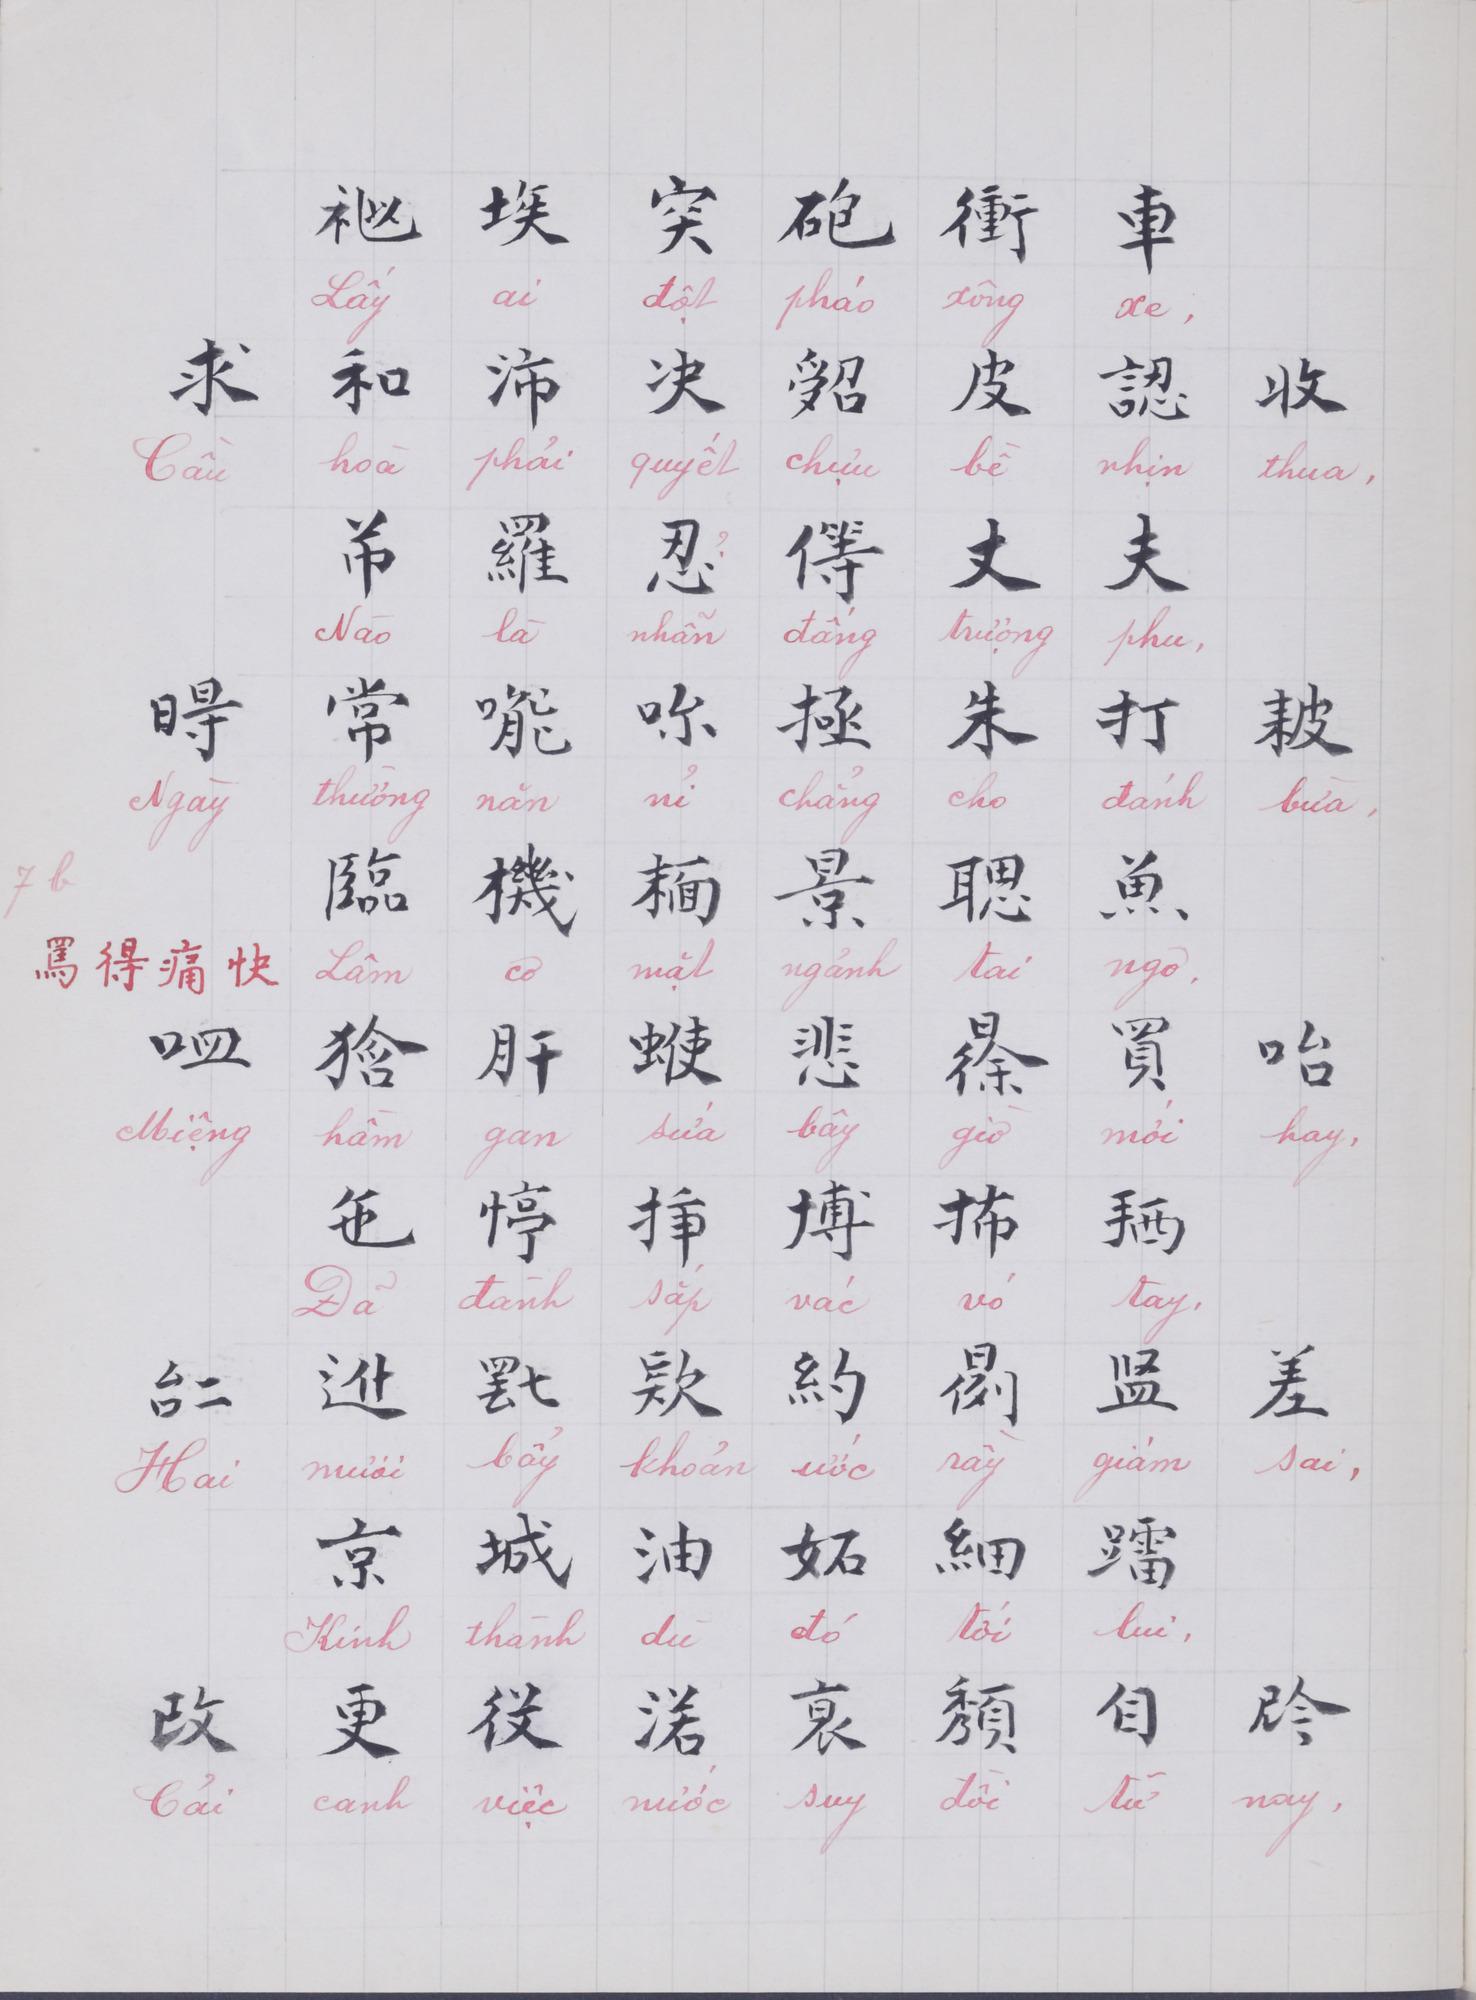 埃突砲衝車
Lấy ai đột pháo xông xe,
求和沛决皮認收
Cầu hoà phải quyết chịu bề nhịn thua,
羅忍丈夫
Nào là nhẫn đấng trượng phu,
常𠹌咏拯朱打
Ngày thường năn nỉ chẳng cho đánh bừa,
7b
臨機𩈘景聰魚
罵得痛快
Lâm cơ mặt ngảnh tai ngơ,
肝悲買咍
Miệng hầm gan sứa bây giờ mới hay,
㐌博抪
Đã đành sắp vác vó tay,
𠄩𨑮𦉱款約監差
Hai mươi bảy khoản ước rầy giám sai,
京城油妬細蹓
Kính thành dù đó tới lui,
改更役渃衰頹自
Cải canh việc nước suy đồi từ nay,